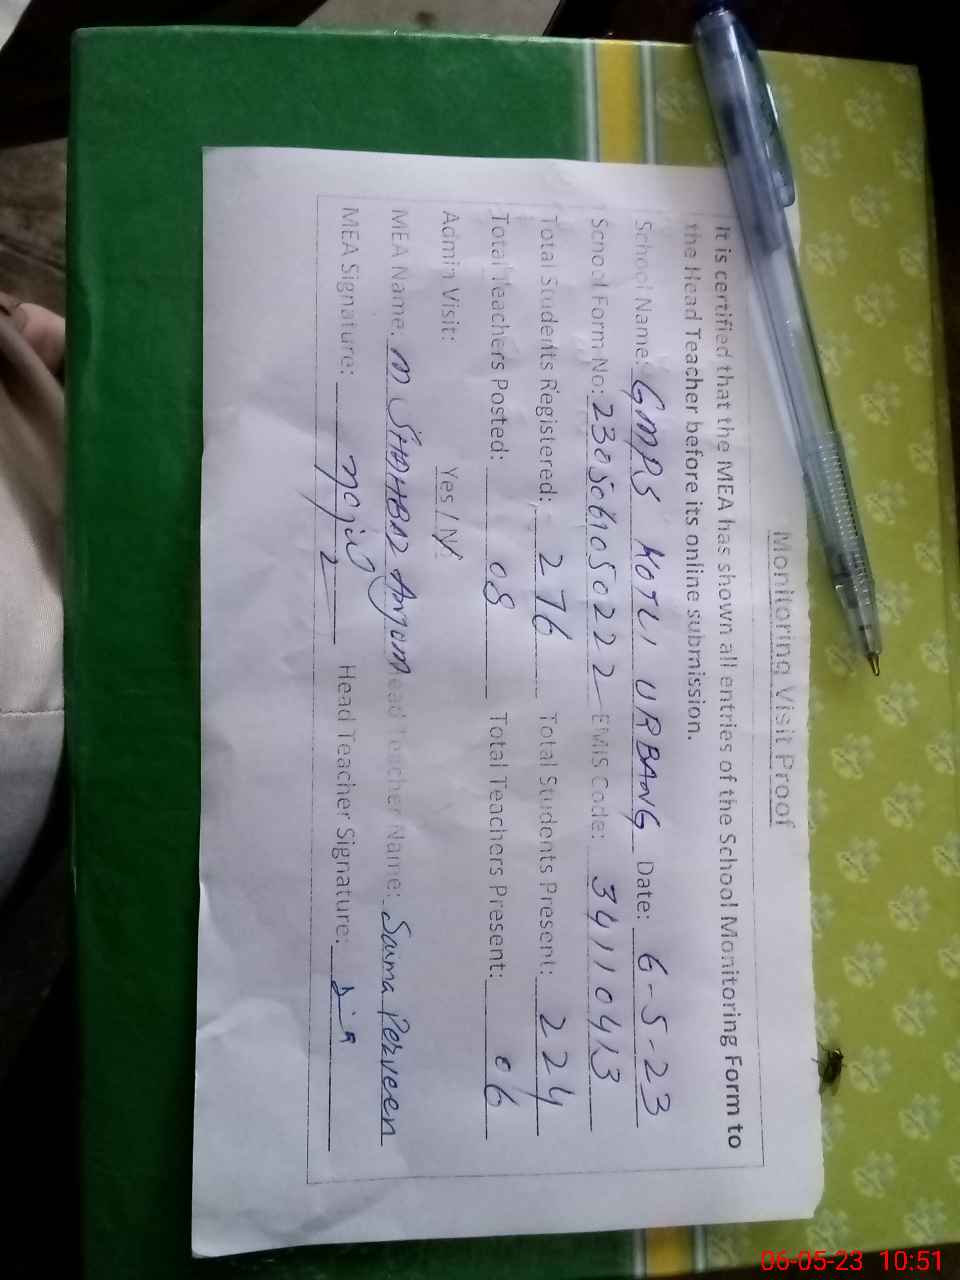 Monitoring Visit Proof
It is certified that the MEA has shown all entries of the School Monitoring Form to
the Head Teacher before its online submission.
School Name: GMPS KOTLI URBANG Date: 6-5-23
School Form No: 230506105022 EMIS Code: 34110413
Total Students Registered: 276 Total Students Present: 224
Total Teachers Posted: 08 Total Teachers Present: 06
Admin Visit: Yes / N
MEA Name: M SHAHBAZ Anjum Head Teacher Name: Saima Perveen
MEA Signature: Head Teacher Signature:
06-05-23 10:51